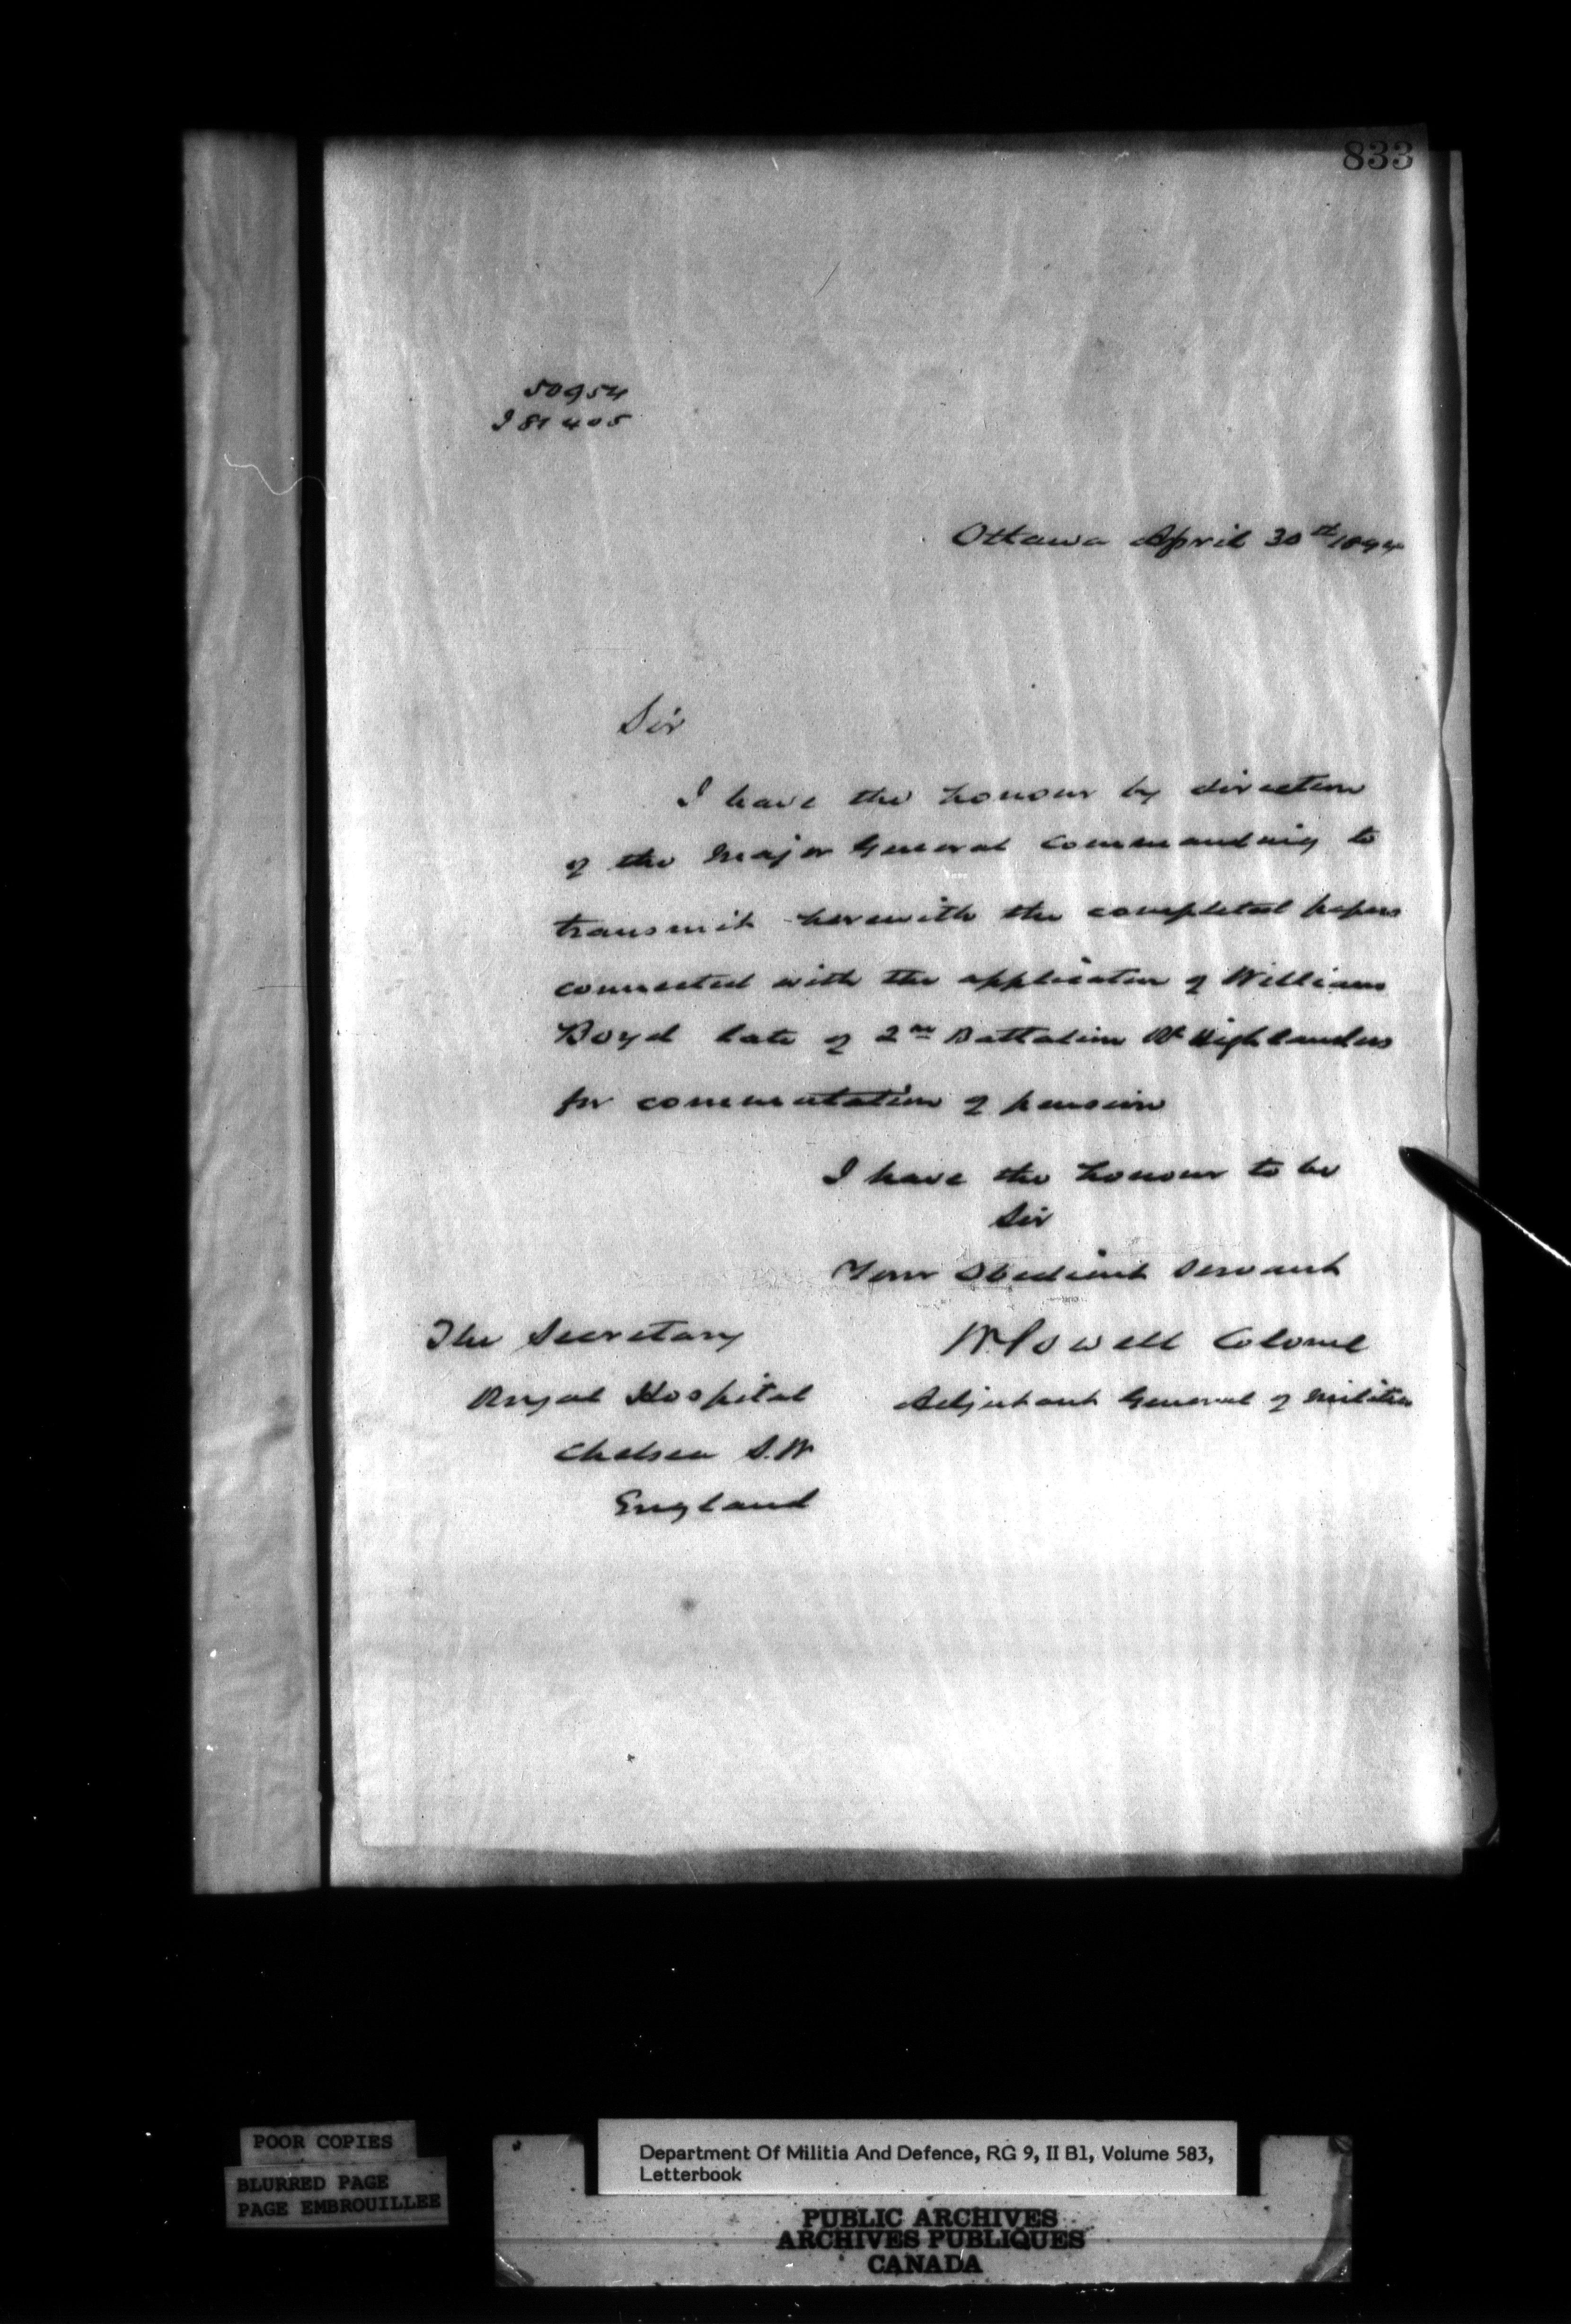 833
50954
I 81405
Ottawa April 30th 1894
Sir
I have the honour by direction
of the Major General Commanding to
transmit herewith the completed papers
connected with the application of William
Boyd late of 2nd Battalion Rl Highlanders
for commutation of pension
I have the honour to be
Sir
Your Obedient Servant
The Secretary
W. Powell Colonel
Royal Hospital
Adjutant General of Militia
Chelsea S.W
England
POOR COPIES
BLURRED PAGE
PAGE EMBROUILLEE
Department Of Militia And Defence, RG 9, II B1, Volume 583,
Letterbook
PUBLIC ARCHIVES
ARCHIVES PUBLIQUES
CANADA